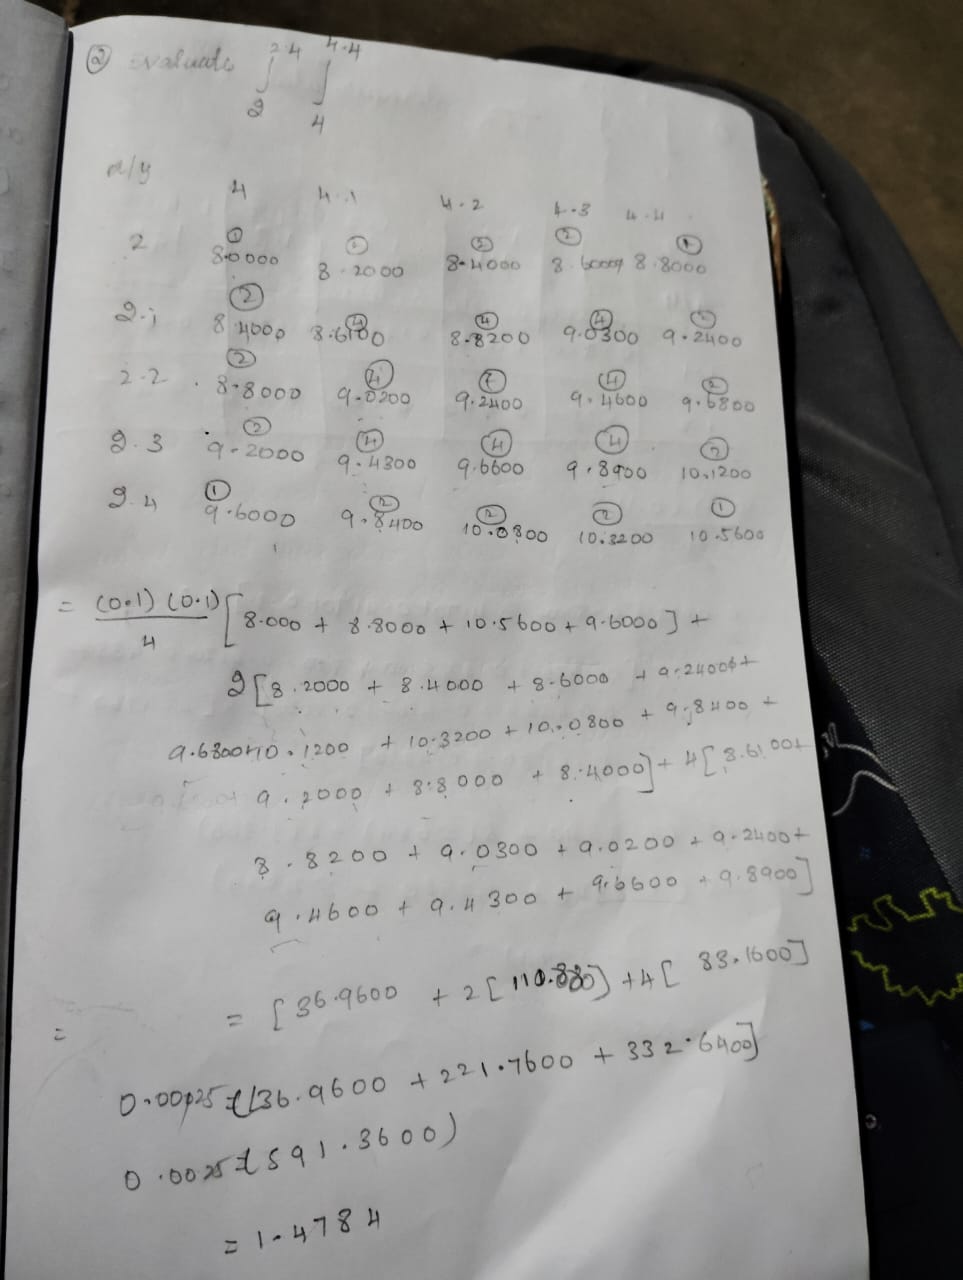 ② Evaluate ∫ 2 2.4 ∫ 4 4.4
x/y
4 4.1 4.2 4.3 4.4
① ② ② ② ①
2 8.0000 8.2000 8.4000 8.6000 8.8000
② ④ ④ ④ ②
2.1 8.4000 8.6100 8.8200 9.0300 9.2400
② ④ ④ ②
2.2 8.8000 9.0200 9.2400 9.4600 9.6800
② ④ ④ ④ ②
2.3 9.2000 9.4300 9.6600 9.8900 10.1200
① ② ② ② ①
2.4 9.6000 9.8400 10.0800 10.3200 10.5600
= (0.1) (0.1) / 4 [8.000 + 8.8000 + 10.5600 + 9.6000] +
2[8.2000 + 8.4000 + 8.6000 + 9.2400 +
9.6800+10.1200 + 10.3200 + 10.0800 + 9.8400 +
9.2000 + 8.8000 + 8.4000] + 4[8.6100+
8.8200 + 9.0300 + 9.0200 + 9.2400+
9.4600 + 9.4300 + 9.6600 + 9.8900]
= [36.9600 + 2[110.880] + 4[83.1600]
=
0.0025 (36.9600 + 221.7600 + 332.6400]
0.0025 (591.3600)
= 1.4784